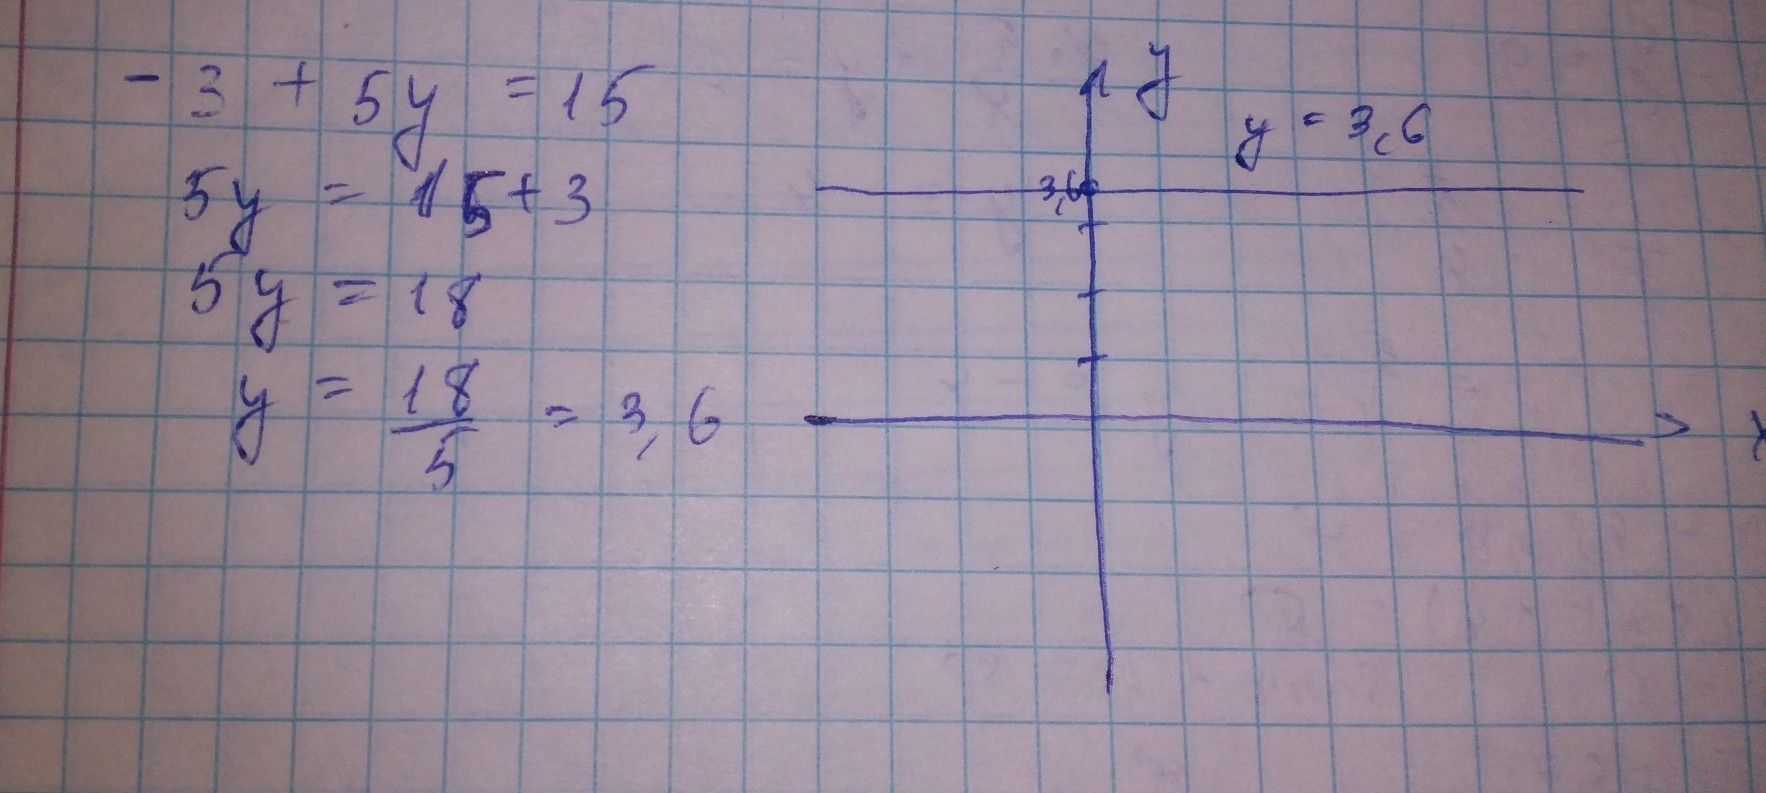 - 3 + 5y = 15
5y = 15 + 3
5y = 18
y = 18/5 = 3,6
y
y = 3,6
3,6
x